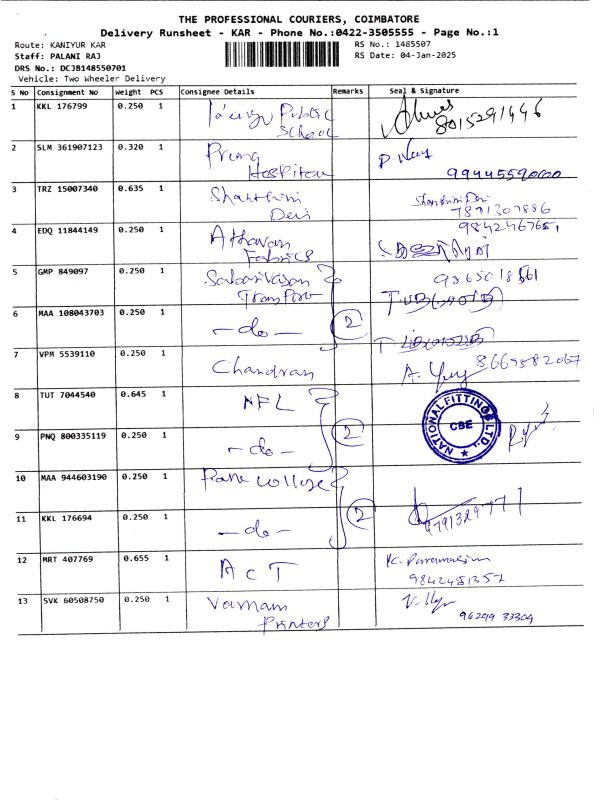 THE PROFESSIONAL COURIERS, COIMBATORE
Delivery Runsheet - KAR - Phone No.:0422-3505555 - Page No.:1
Route: KANIYUR KAR RS No.: 1485507
Staff: PALANI RAJ RS Date: 04-Jan-2025
DRS No.: DCJB148550701
Vehicle: Two Wheeler Delivery
S No Consignment No Weight PCS Consignee Details Remarks Seal & Signature
1 KKL 176799 0.250 1 Public
School 8015291446
2 SLM 361907123 0.320 1 Prima
Hospital
3 TRZ 15007340 0.635 1 Shanthini Shanthini Devi
Devi 7871307886
4 EDQ 11844149 0.250 1 Athavan
Fabrics
5 GMP 849097 0.250 1 Sabarivasan
Transport
6 MAA 108043703 0.250 1 - do - 2
7 VPM 5539110 0.250 1 Chandran 8669582067
8 TUT 7044540 0.645 1 NFL NATIONAL FITTINGS LTD.,
CBE
9 PNQ 800335119 0.250 1 - do - 2
10 MAA 944603190 0.250 1 College
11 KKL 176694 0.250 1 - do - 2
12 MRT 407769 0.655 1 ACT K. Paramasivm
9842481357
13 SVK 60508750 0.250 1 Varnam
Printers 96299 33309